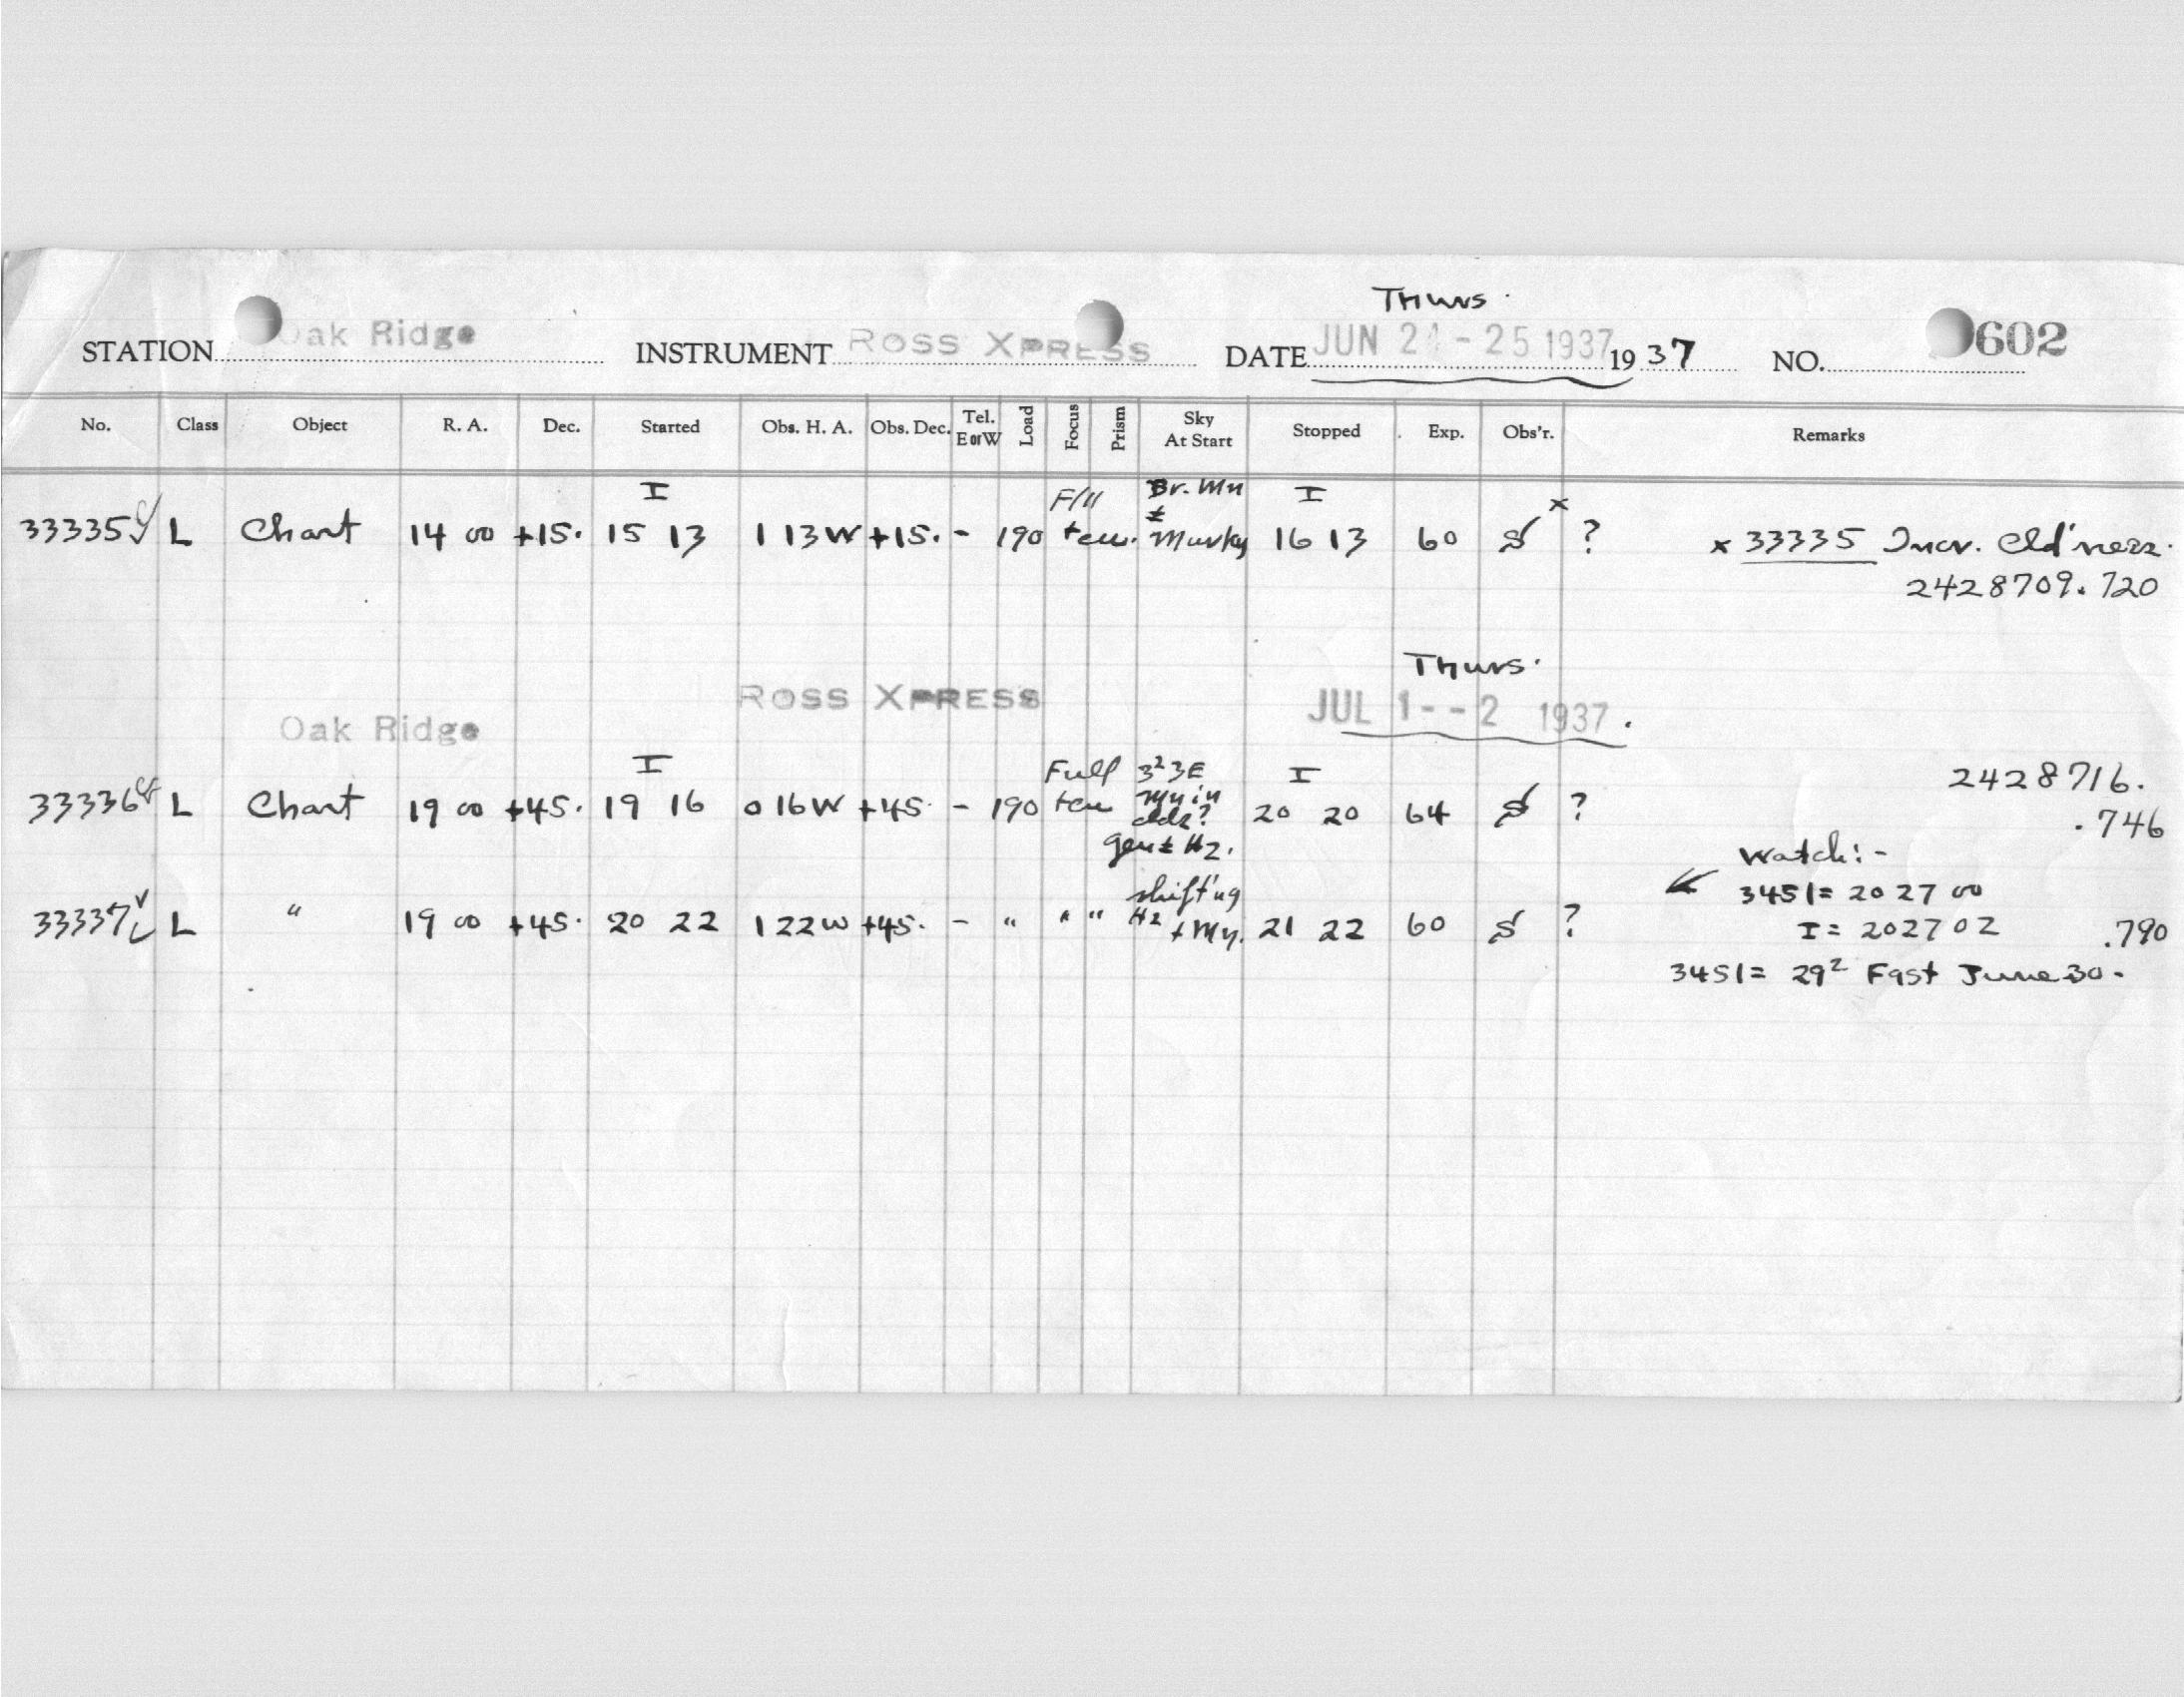 Thurs.
STATION Oak Ridge INSTRUMENT ROSS XPRESS DATE JUN 24 - 25 1937 19 37 NO. 602
No. Class Object R. A. Dec. Started Obs. H. A. Obs. Dec. Tel. E or W Load Focus Prism Sky At Start Stopped Exp. Obs'r. Remarks
I F/11 Br. Mn I x
33335 L Chart 14 00 +15. 15 13 1 13 W +15. - 190 ten. ± Murky 16 13 60 S ? x 33335 Incr. Cld'ness.
2428709.720
Thurs.
Oak Ridge ROSS XPRESS JUL 1 - - 2 1937.
I Full 3²3E I 2428716.
33336 L Chart 19 00 +45. 19 16 0 16 W +45. - 190 ten Mn in clds? 20 20 64 S ? .746
gen ± Hz.
Watch:-
3451 = 20 27 00
shift'ng
33337 L " 19 00 +45. 20 22 1 22 W +45. - " " " Hz + My. 21 22 60 S ? I = 20 27 02 .790
3451 = 29² Fast June 30.